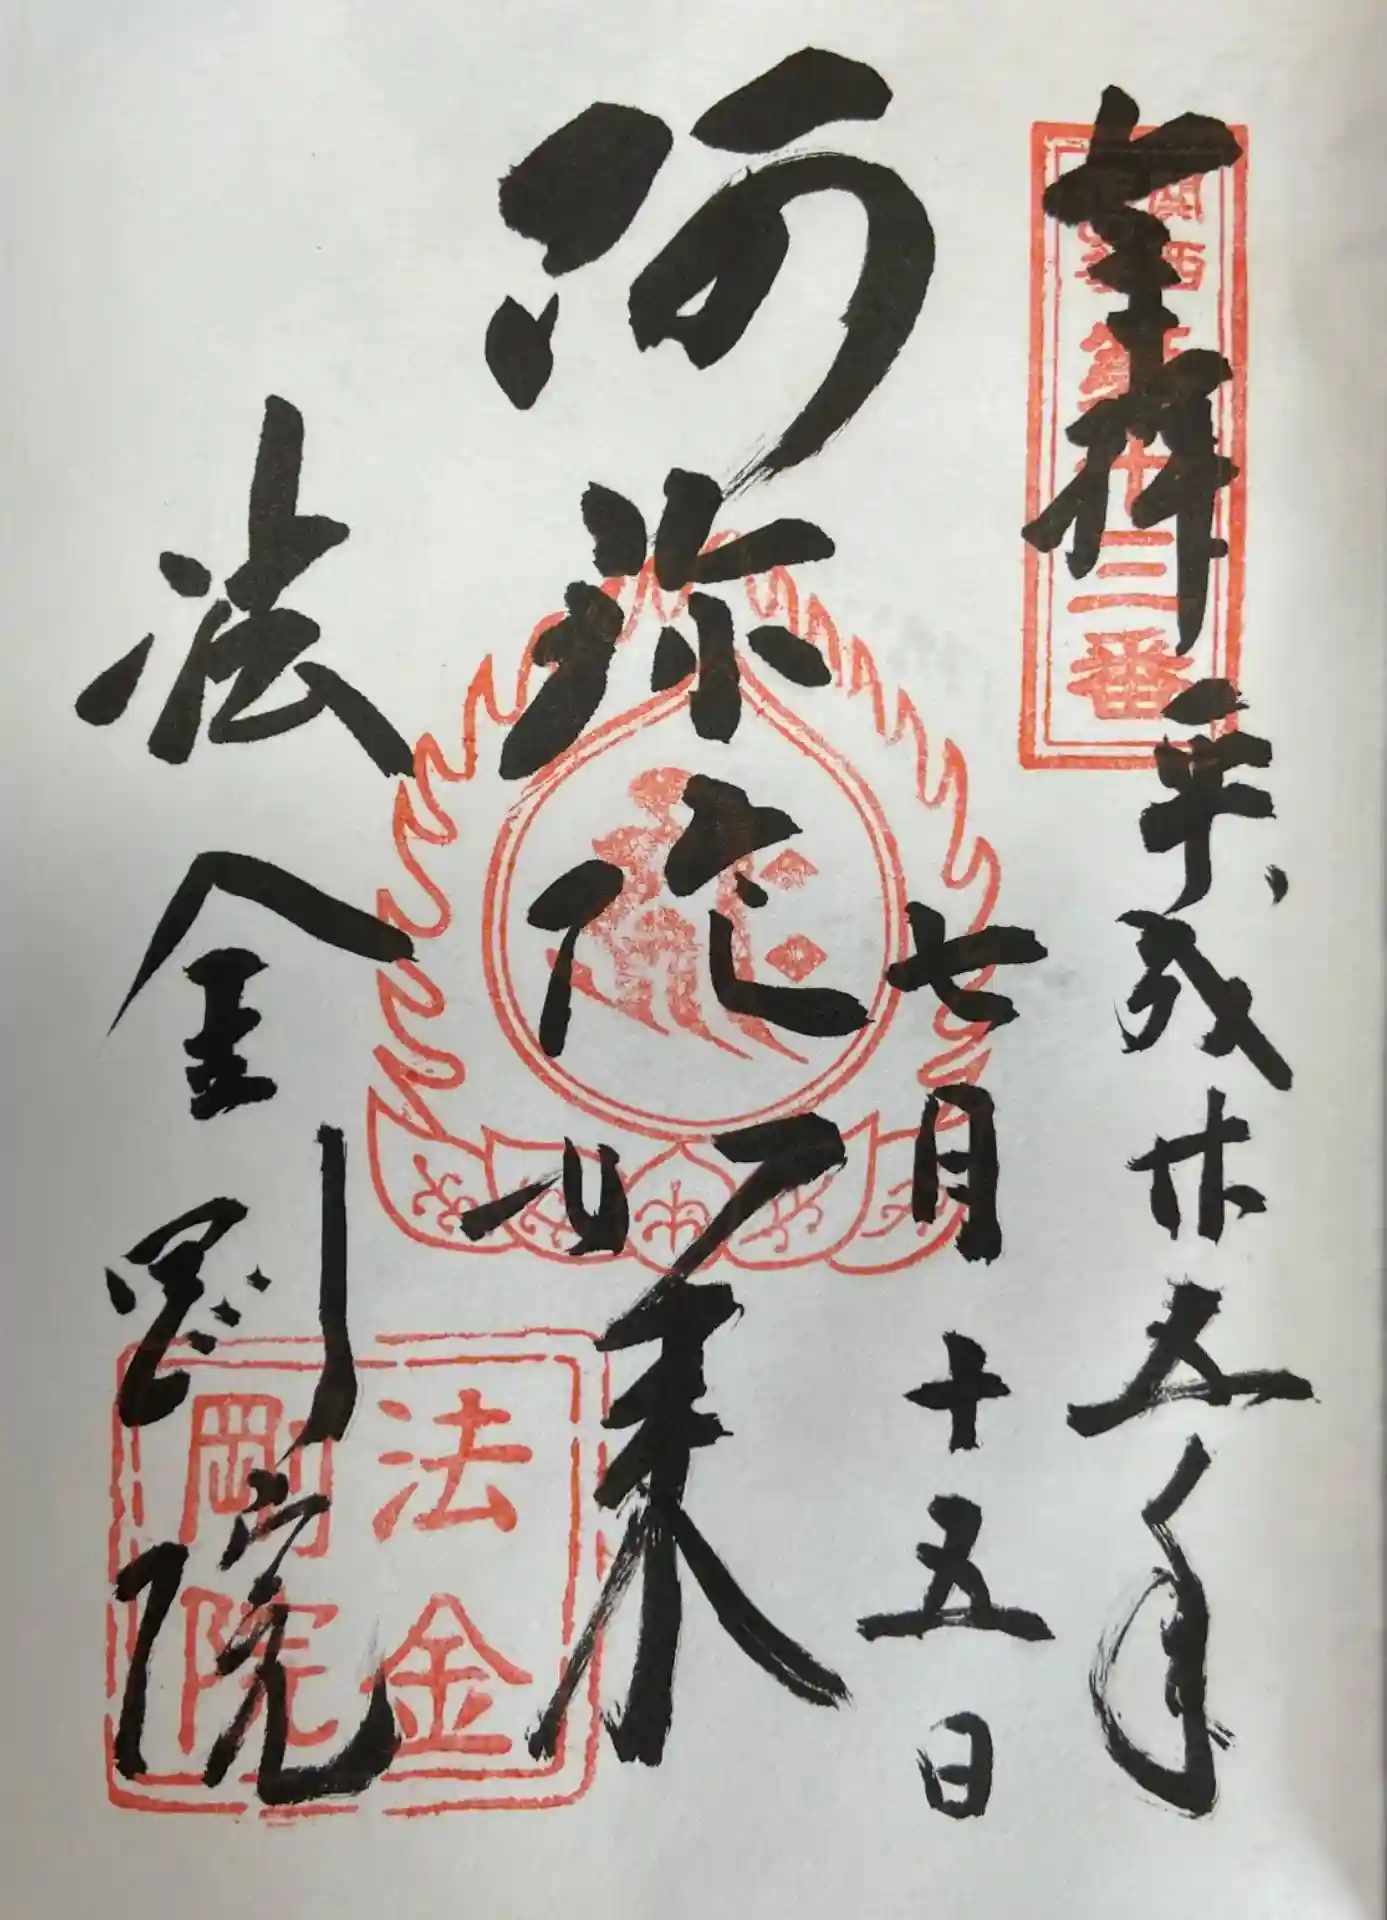 奉拝
関西
第十三番
平成廿五年
七月十五日
阿弥陀如来
法金剛院
法金
剛院